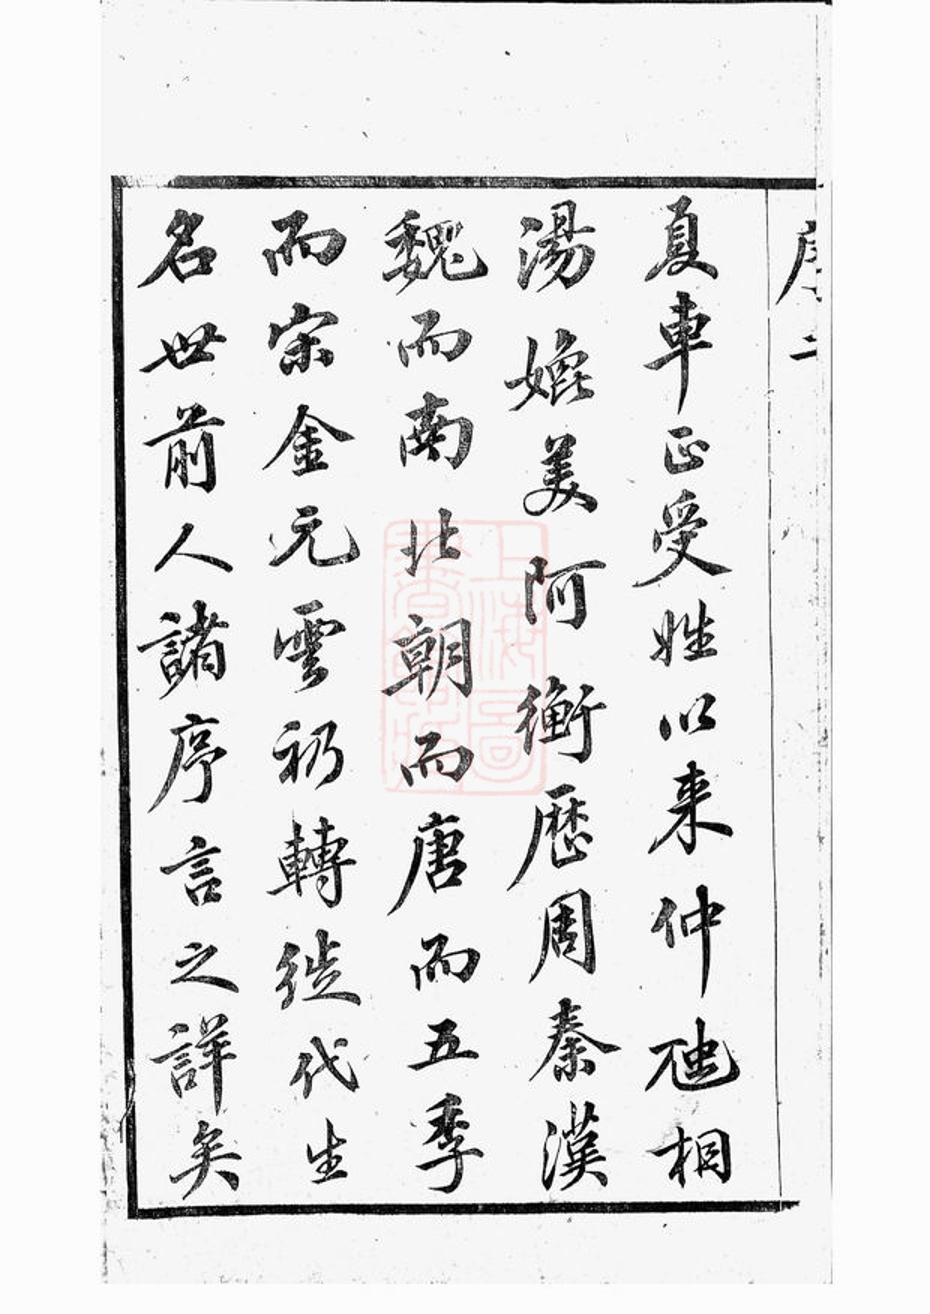 序二
夏車正受姓以来仲虺相
湯媲美阿衡歷周秦漢
魏而南北朝而唐而五季
而宋金元雲礽轉徙代生
名世前人諸序言之詳矣
上海圖書館藏